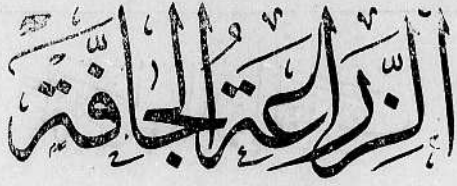 الزراعة الجافة